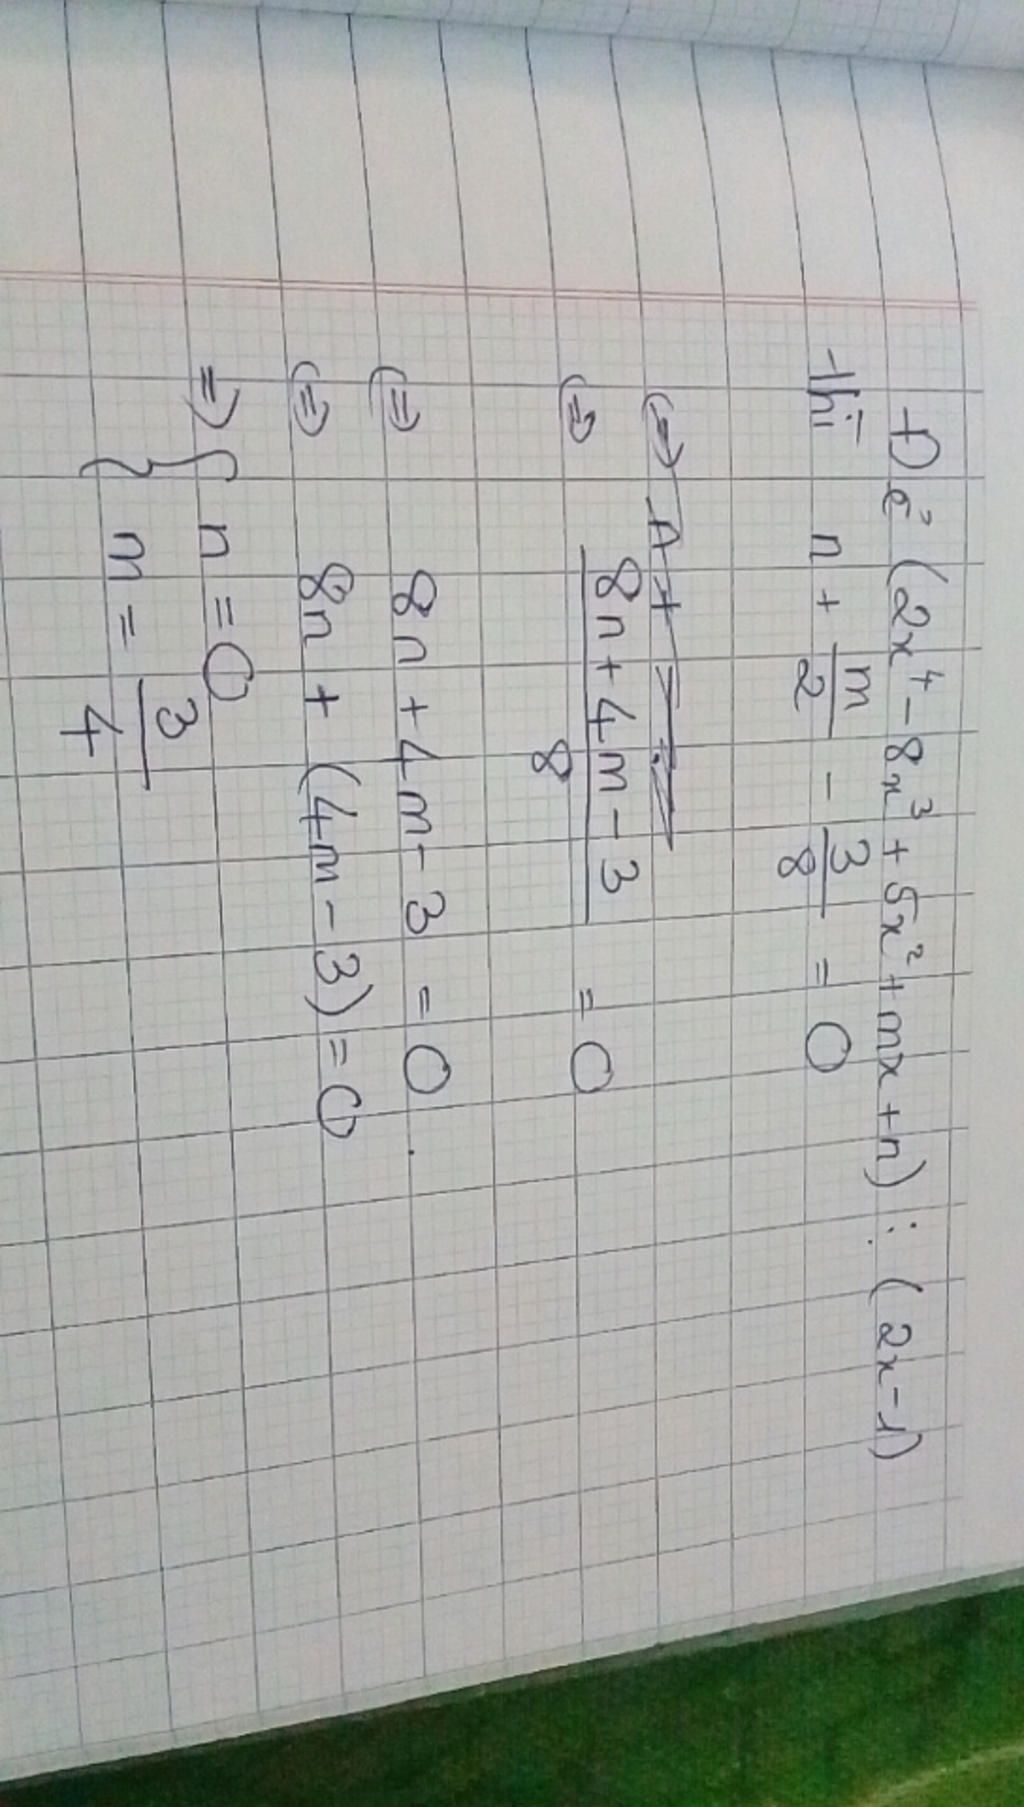 Để (2x⁴ - 8x³ + 5x² + mx + n) ⋮ (2x - 1)
Thì n + m/2 - 3/8 = 0
(=)
(=) (8n + 4m - 3)/8 = 0
(=) 8n + 4m - 3 = 0
(=) 8n + (4m - 3) = 0
=) { n = 0
m = 3/4